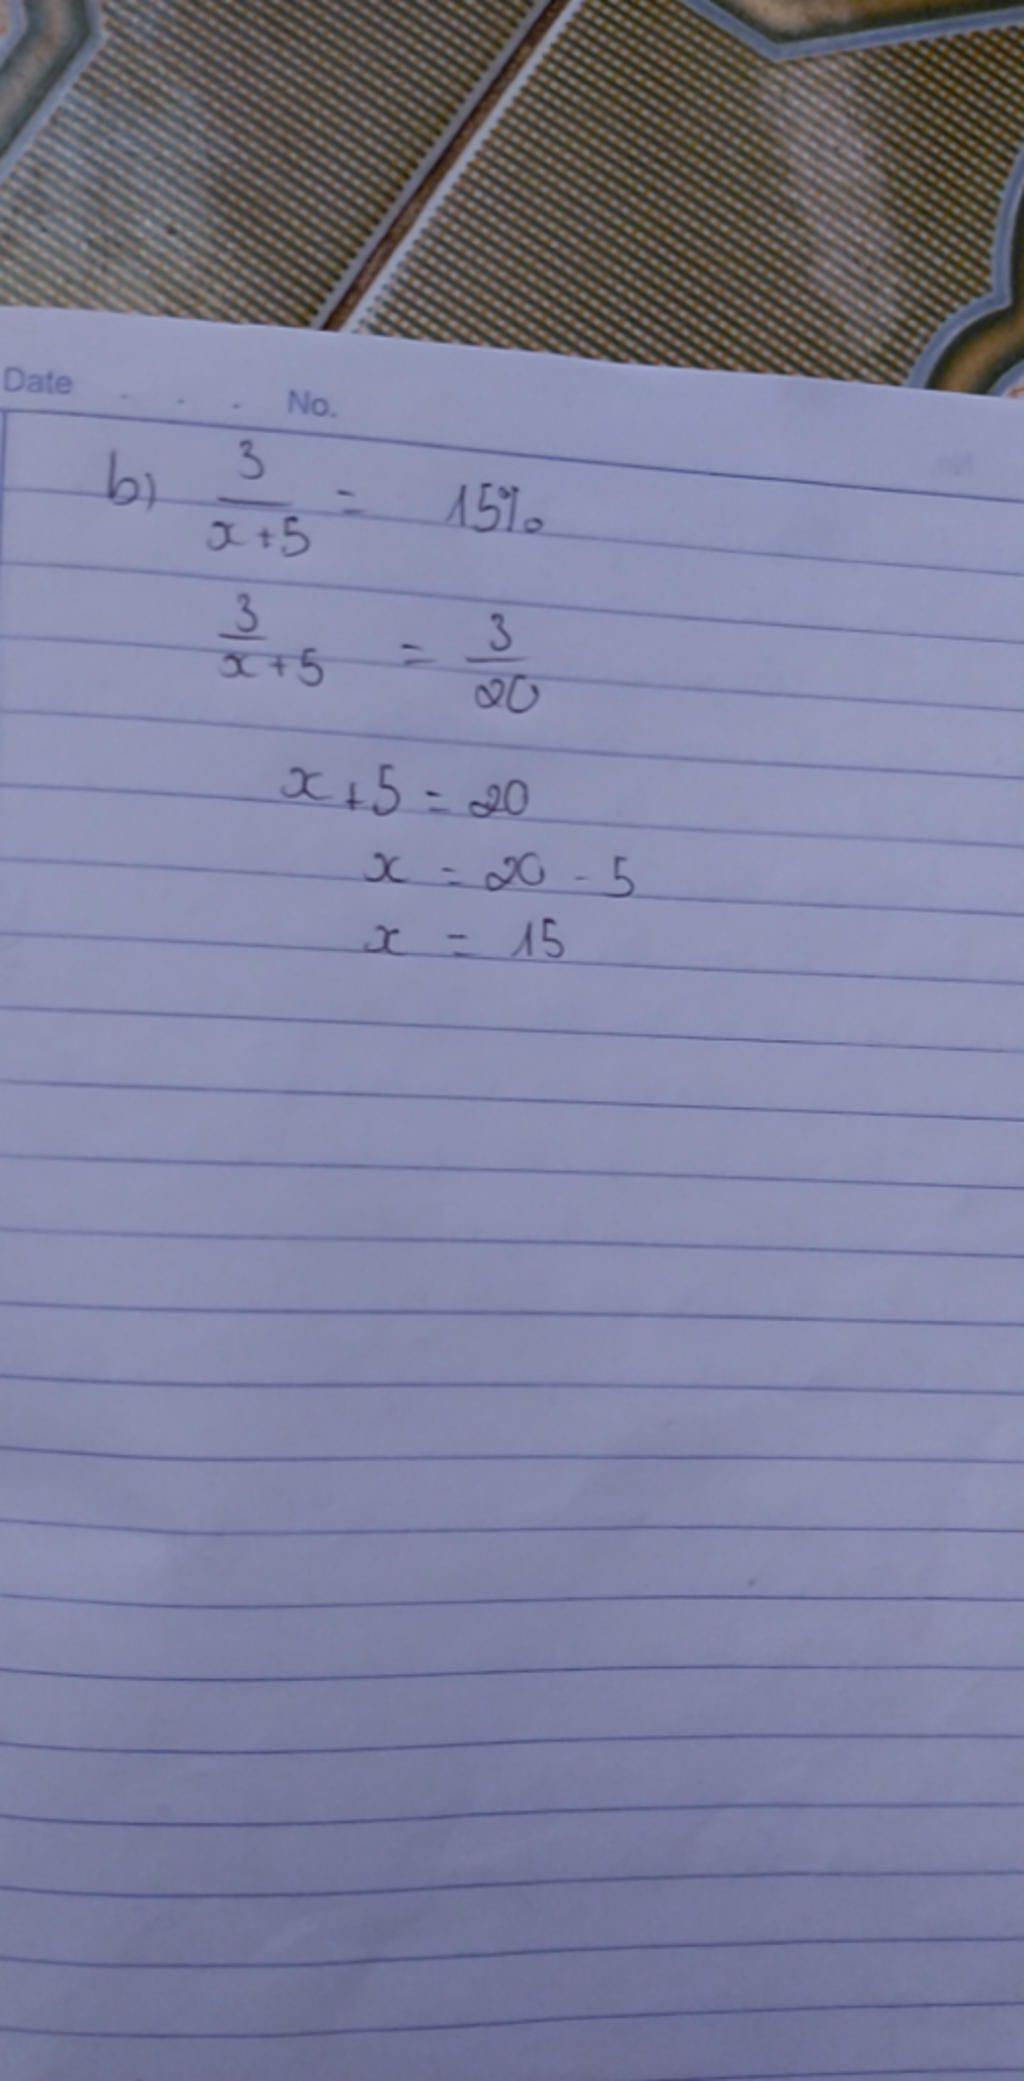 Date . . . No.
b) 3/(x+5) = 15%
3/(x+5) = 3/20
x+5 = 20
x = 20 - 5
x = 15